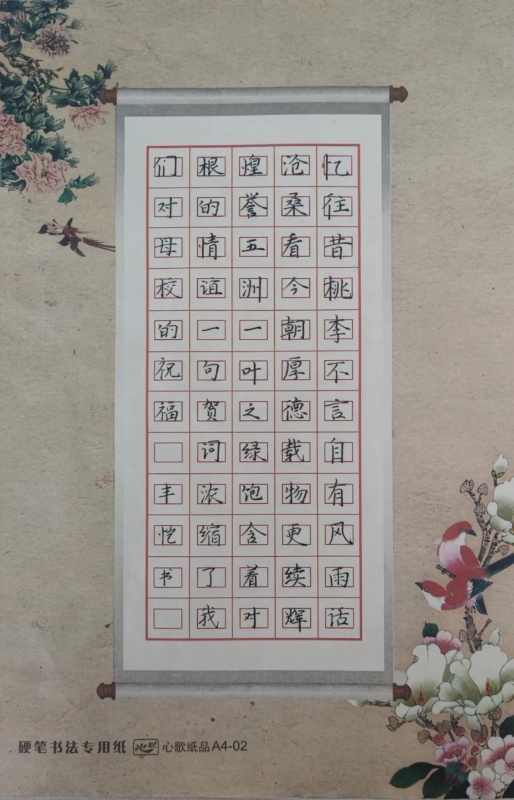 忆往昔桃李不言自有风雨话
沧桑看今朝厚德载物更续辉
煌誉五洲一叶之绿饱含着对
根的情谊一句贺词浓缩了我
们对母校的祝福 丰恺书
硬笔书法专用纸 心歌纸品A4-02